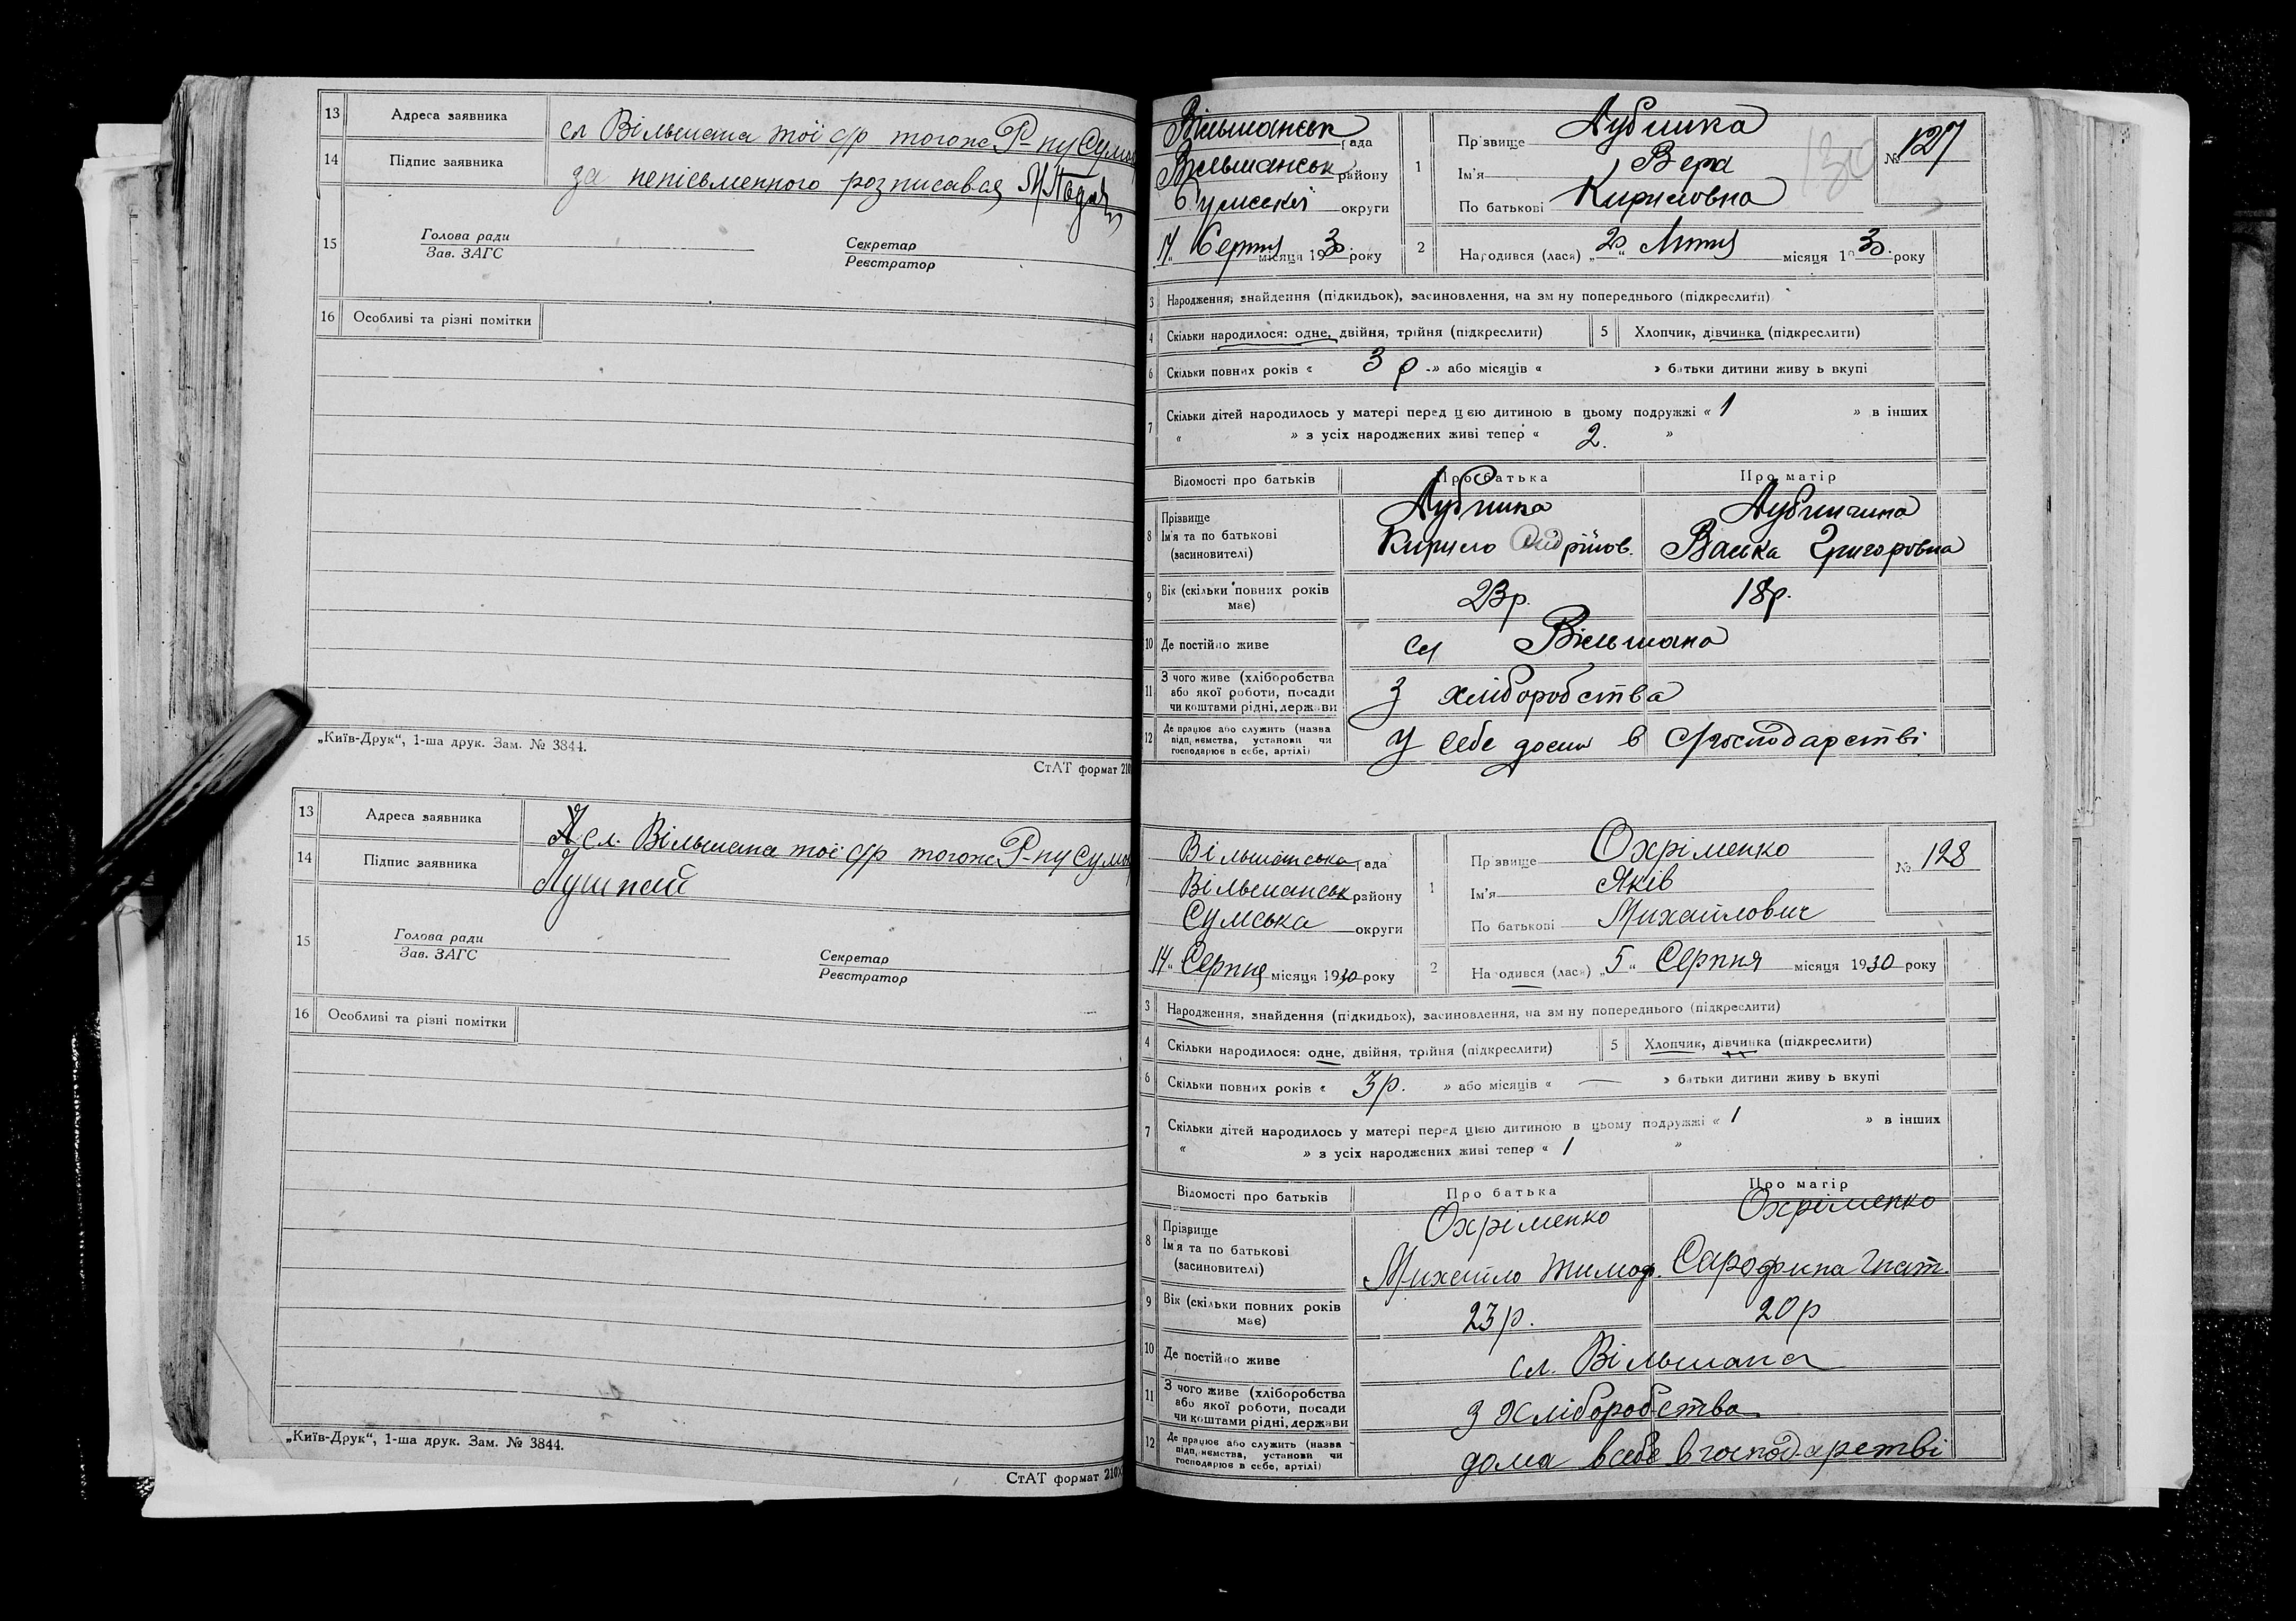 13 Адреса заявника сл Вільшана тої с/р тогож Р-ну Сумс
14 Підпис заявника за непісьменного розписався
15 Голова ради
Зав. ЗАГС
Секретар
Реєстратор
16 Особливі та різні помітки
„Київ-Друк“, 1-ша друк. Зам. № 3844.
СтАТ формат 210
13 Адреса заявника сл. Вільшана тої с/р тогож Р-ну Сумс
14 Підпис заявника
15 Голова ради
Зав. ЗАГС
Секретар
Реєстратор
16 Особливі та різні помітки
„Київ-Друк“, 1-ша друк. Зам. № 3844.
СтАТ формат 210
Вільшанськ рада
Вільшанськ району
Сумської округи
14 Серпня місяця 1930 року
1 Прізвище Лубшика
Ім'я Вера
По батькові Кириловна
130
№ 127
2 Народився (лася) „20“ Липня місяця 1930 року
3 Народження, знайдення (підкидьок), засиновлення, на зміну попереднього (підкреслити)
4 Скільки народилося: одне, двійня, трійня (підкреслити) 5 Хлопчик, дівчинка (підкреслити)
6 Скільки повних років « 3 р » або місяців « » батьки дитини живуть вкупі
7 Скільки дітей народилось у матері перед цією дитиною в цьому подружжі « 1 » в інших
« » з усіх народжених живі тепер « 2. »
Відомості про батьків Про батька Про матір
8 Прізвище
Ім'я та по батькові
(засиновителі)
Кирило Андрійов.
Васька Григоровна
9 Вік (скільки повних років має) 23р. 18р.
10 Де постійно живе сл Вільшана
11 З чого живе (хліборобства
або якої роботи, посади
чи коштами рідні, держави
З хліборобства
12 Де працює або служить (назва
підприємства, установи чи
господарює в себе, артілі)
У себе дома в с/господарстві
Вільшанська рада
Вільшанськ району
Сумська округи
14„ Серпня місяця 1930 року
1 Прізвище Охріменко
Ім'я Яків
По батькові Михайлович
№ 128
2 Народився (лася) „5“ Серпня місяця 1930 року
3 Народження, знайдення (підкидьок), засиновлення, на зміну попереднього (підкреслити)
4 Скільки народилося: одне, двійня, трійня (підкреслити) 5 Хлопчик, дівчинка (підкреслити)
6 Скільки повних років « 3р. » або місяців « — » батьки дитини живуть вкупі
7 Скільки дітей народилось у матері перед цією дитиною в цьому подружжі « 1 » в інших
« » з усіх народжених живі тепер « 1 »
Відомості про батьків Про батька Про матір
8 Прізвище
Ім'я та по батькові
(засиновителі)
Охріменко Охріменко
Михайло Тимоф. Сарофина Гнат.
9 Вік (скільки повних років має) 23р. 20р
10 Де постійно живе сл. Вільшана
11 З чого живе (хліборобства
або якої роботи, посади
чи коштами рідні, держави
З Хліборобства
12 Де працює або служить (назва
підприємства, установи чи
господарює в себе, артілі)
дома в себе в господарстві